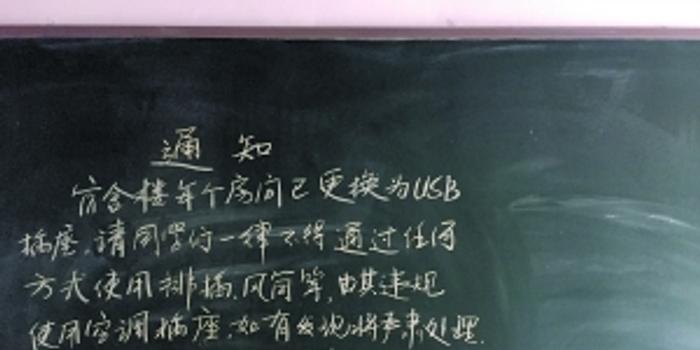 通知
宿舍楼每个房间已更换为USB
插座,请同学们一律不得通过任何
方式使用排插、风筒等,尤其违规
使用空调插座,如有发现将严肃处理.